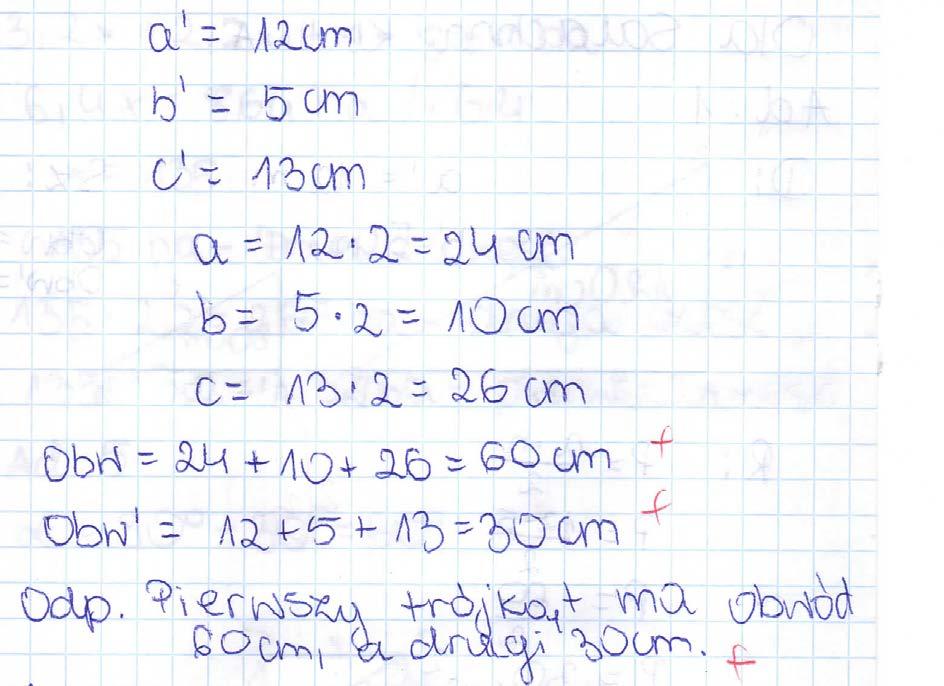 a' = 12cm
b' = 5cm
c' = 13cm
a = 12·2 = 24cm
b = 5·2 = 10cm
c = 13·2 = 26cm
Obw = 24 + 10 + 26 = 60cm +
Obw' = 12 + 5 + 13 = 30cm +
Odp. Pierwszy trójkąt ma obwód
60cm, a drugi 30cm. +